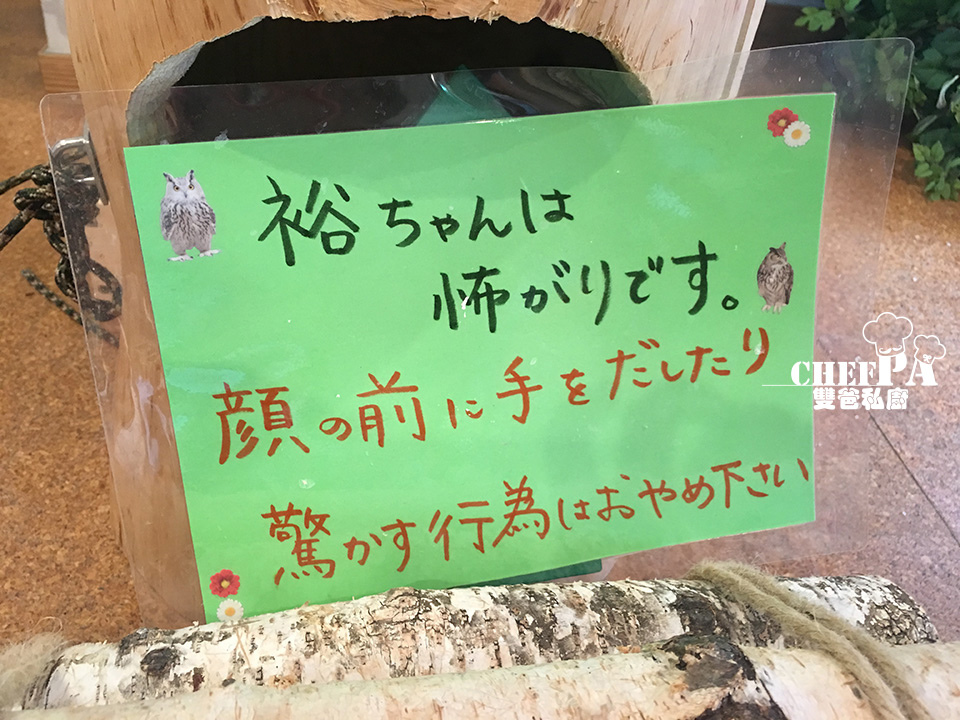 裕ちゃんは
怖がりです。
顔の前に手をだしたり
驚かす行為はおやめ下さい
CHEFPA
雙爸私廚